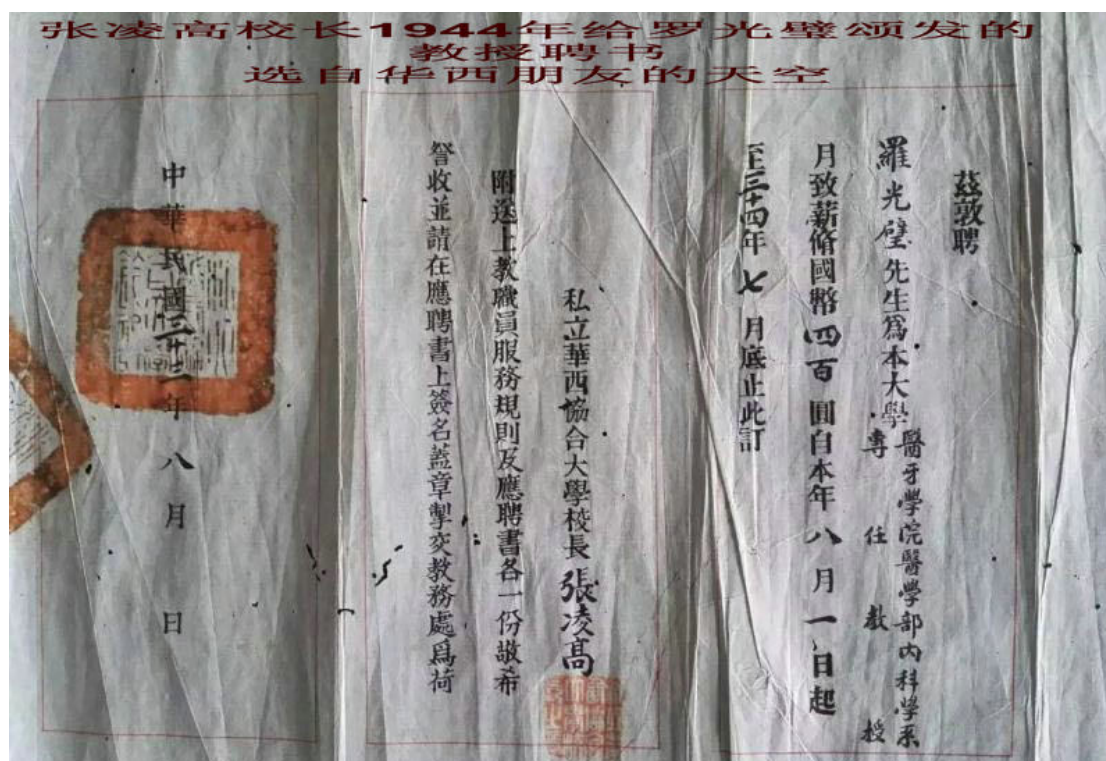 张凌高校长1944年给罗光壁颁发的
教授聘书
选自华西朋友的天空
茲敦聘
羅光壁先生爲本大學
醫牙學院醫學部內科學系
專任教授
月致薪脩國幣四百圓自本年八月一日起
至三十四年七月底止此訂
私立華西協合大學校長張凌高
附送上教職員服務規則及應聘書各一份敬希
詧收並請在應聘書上簽名蓋章掣交教務處爲荷
中華民國三十二年八月 日